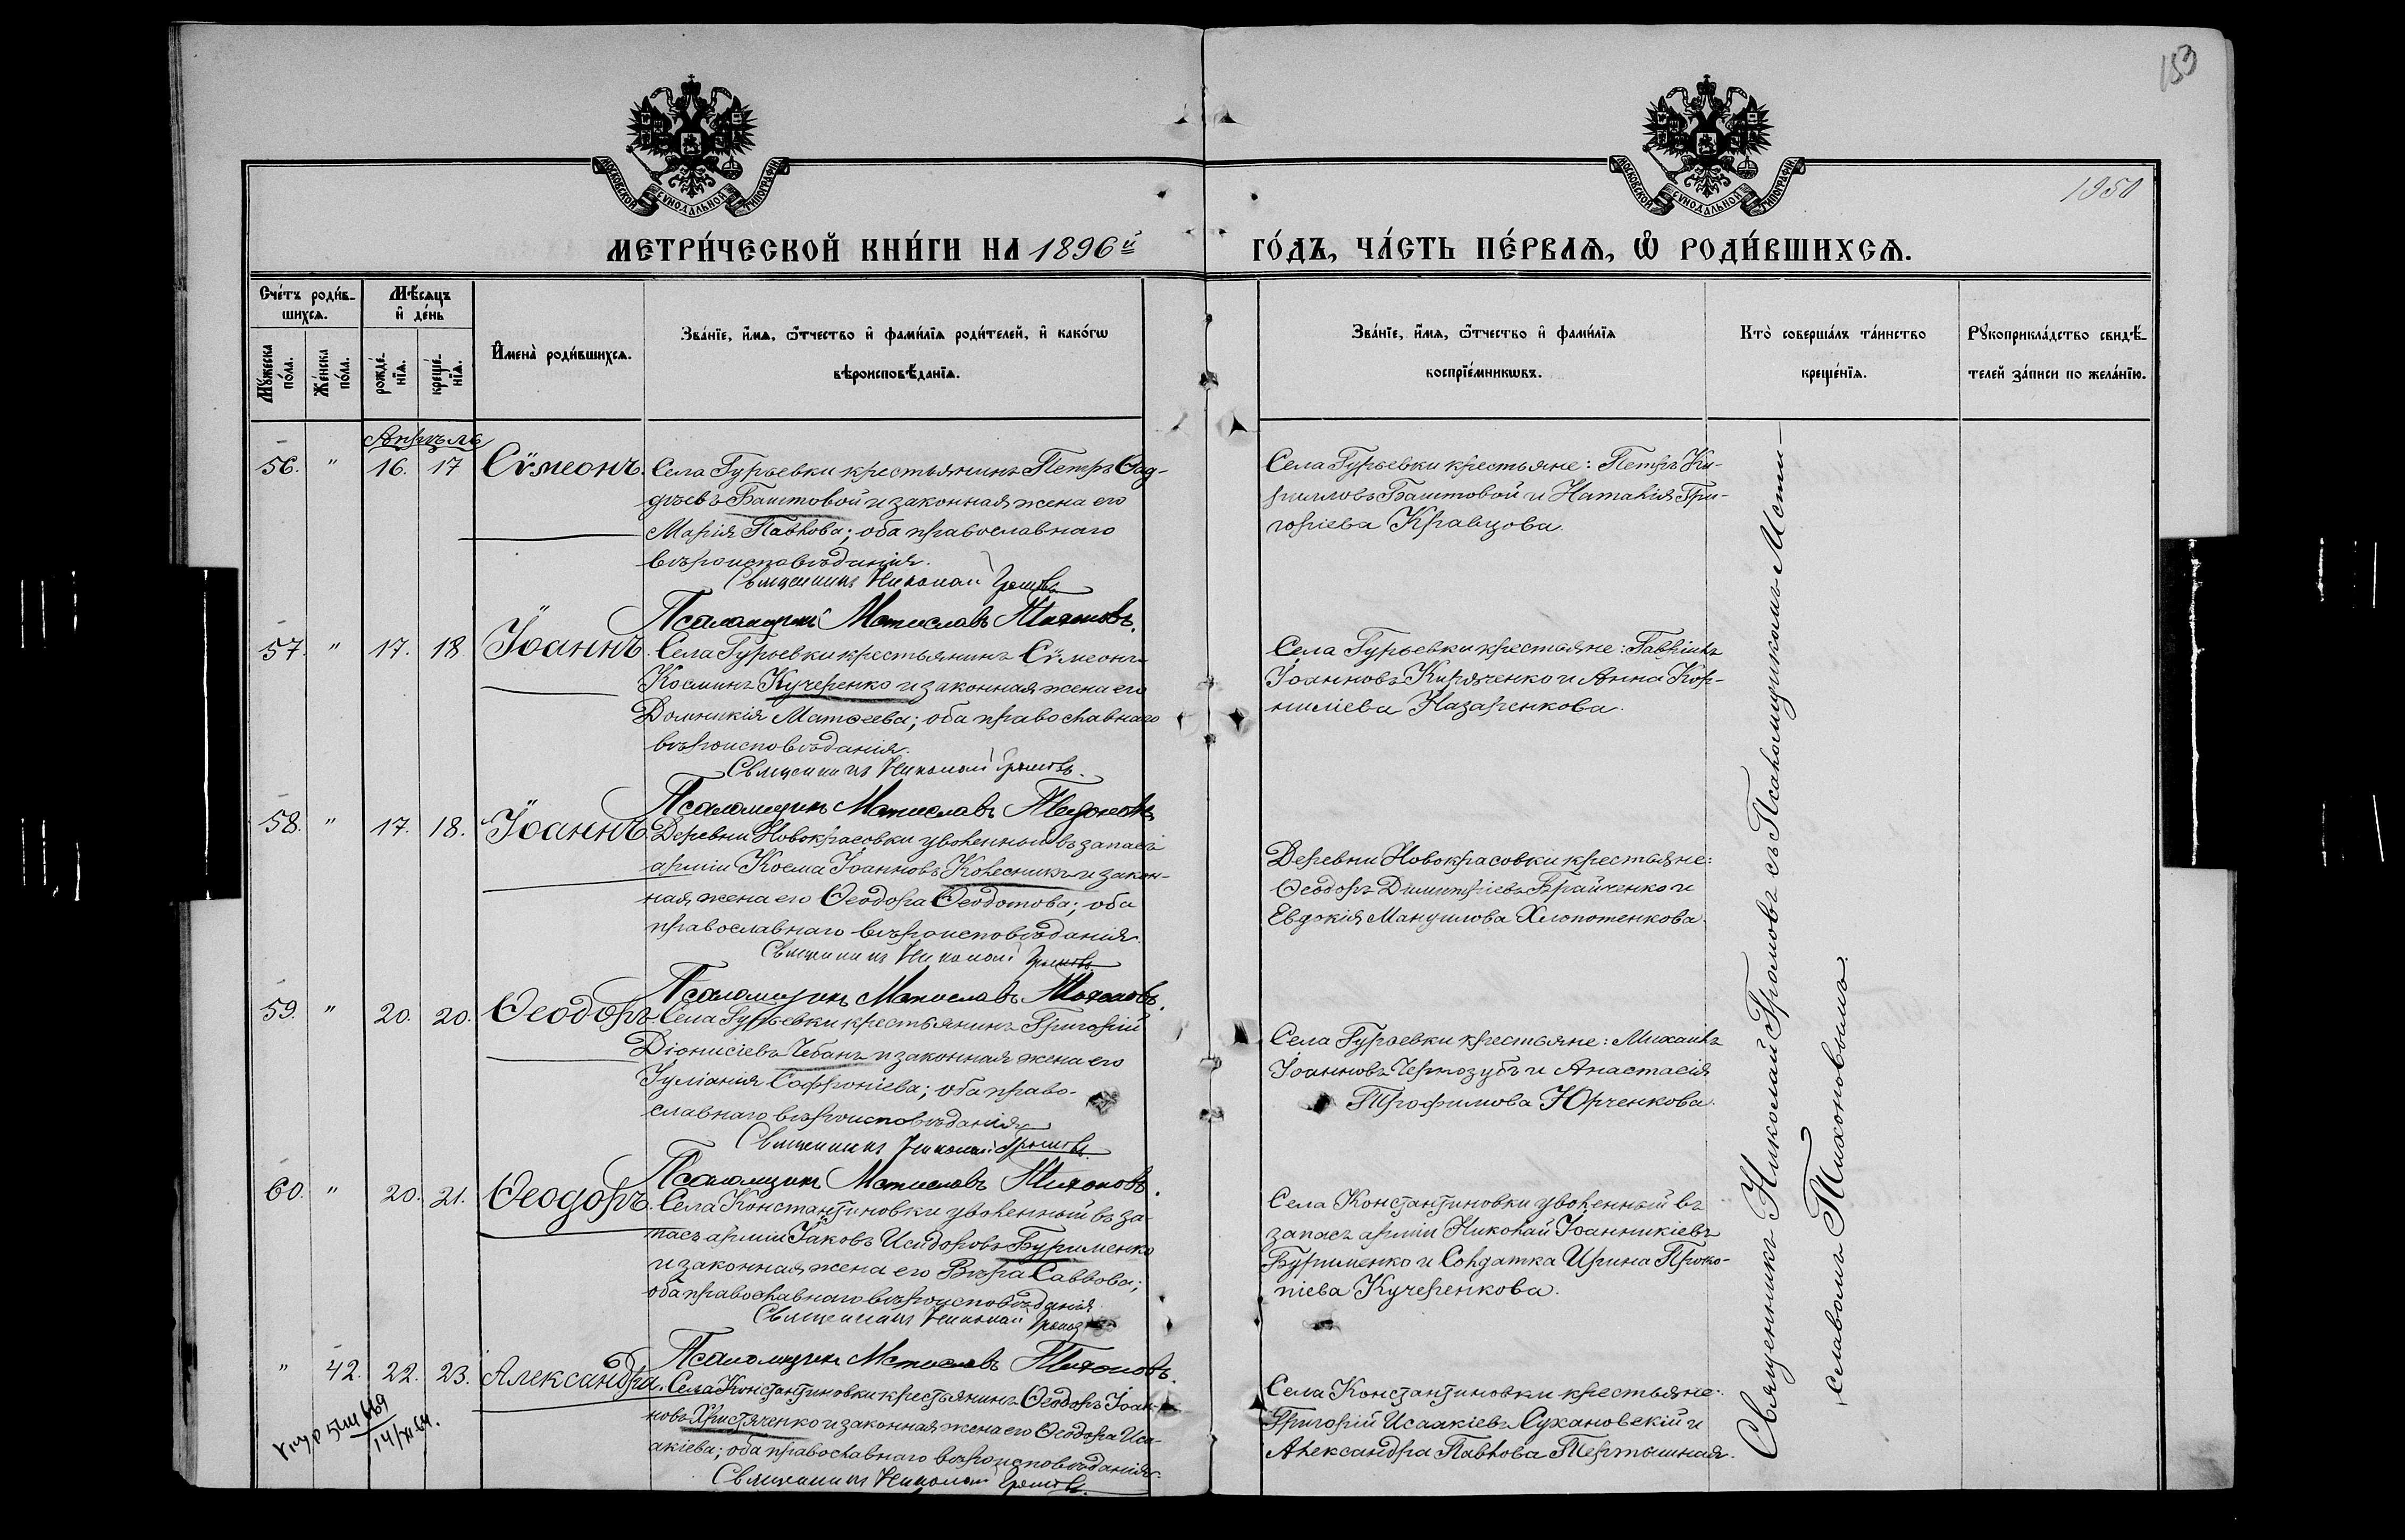 153
МОСКОВСКОЙ СУНОДАЛЬНОЙ ТИПОГРАФІИ
МОСКОВСКОЙ СУНОДАЛЬНОЙ ТИПОГРАФІИ
1950
МЕТРИ́ЧЕСКОЙ КНИ́ГИ НА 1896й
ГО́ДЪ, ЧА́СТЬ ПЕ́РВАѦ, Ѡ РОДИ́ВШИХСѦ.
Сче́тъ роди́в-
шихсѧ.
Мѣ́сѧцъ
и҆ де́нь
Му́жеска
по́ла.
Же́нска
по́ла.
рожде́-
нїѧ.
креще́-
нїѧ.
И҆мена̀ роди́вшихсѧ.
Зва́нїе, и҆́мѧ, ѻ҆́тчество и҆ фами́лїѧ роди́телей, и҆ како́гѡ
вѣроисповѣ́данїѧ.
Зва́нїе, и҆́мѧ, ѻ҆́тчество и҆ фами́лїѧ
воспрїе́мникѡвъ.
Кто̀ соверша́лъ та́инство
креще́нїѧ.
Рꙋкоприкла́дство свидѣ́-
телей за́писи по жела́нїю.
Апрѣль
56. " 16. 17 Сѵмеонъ.
Села Гурьевки крестьянинъ Петръ Фад-
дѣевъ Баштовой и законная жена его
Марія Павлова; оба православнаго
вѣроисповѣданія.
Священникъ Николай Громовъ
Псаломщикъ Мстиславъ Тихоновъ.
Села Гурьевки крестьяне: Петръ Ки-
рилловъ Баштовой и Наталія Гри-
горіева Кравцова.
57. " 17. 18. Іоаннъ.
Села Гурьевки крестьянинъ Сѵмеонъ
Косминъ Кучеренко и законная жена его
Домникія Матѳеева; оба православнаго
вѣроисповѣданія.
Священникъ Николай Громовъ.
Псаломщикъ Мстиславъ Тихоновъ
Села Гурьевки крестьяне: Гавріилъ
Іоанновъ Кириченко и Анна Кор-
ниліева Назаренкова.
58. " 17. 18. Іоаннъ.
Деревни Новокрасовки уволенный въ запасъ
арміи Косма Іоанновъ Колесникъ и закон-
ная жена его Ѳеодора Ѳеодотова; оба
православнаго вѣроисповѣданія.
Священникъ Николай Громовъ
Псаломщикъ Мстиславъ Тихоновъ.
Деревни Новокрасовки крестьяне:
Ѳеодоръ Димитріевъ Брайченко и
Евдокія Мануилова Хлопотенкова.
59. " 20. 20. Ѳеодоръ.
Села Гурьевки крестьянинъ Григорій
Діонисіевъ Чебанъ и законная жена его
Іуліанія Софроніева; оба право-
славнаго вѣроисповѣданія
Священникъ Николай Громовъ.
Псаломщикъ Мстиславъ Тихоновъ.
Села Гурьевки крестьяне: Михаилъ
Іоанновъ Чернозубъ и Анастасія
Трофимова Юрченкова.
60. " 20. 21. Ѳеодоръ.
Села Константиновки уволенный въ за-
пасъ арміи Іаковъ Исидоровъ Буряменко
и законная жена его Вѣра Саввова;
оба православнаго вѣроисповѣданія
Священникъ Николай Громовъ
Псаломщикъ Мстиславъ Тихоновъ.
Села Константиновки уволенный въ
запасъ арміи Николай Іоанникіевъ
Буряменко и Солдатка Ирина Проко-
піева Кучеренкова.
" 42. 22. 23. Александра.
Села Константиновки крестьянинъ Ѳеодоръ Іоан-
новъ Христяченко и законная жена его Ѳеодора Иса-
акіева; оба православнаго вѣроисповѣданія.
Священникъ Николай Громовъ.
Села Константиновки крестьяне:
Григорій Исаакіевъ Сухановскій и
Александра Павлова Тертышная.
Священникъ Николай Громовъ съ Псаломщикомъ Мсти-
славомъ Тихоновымъ.
14/XI 64.